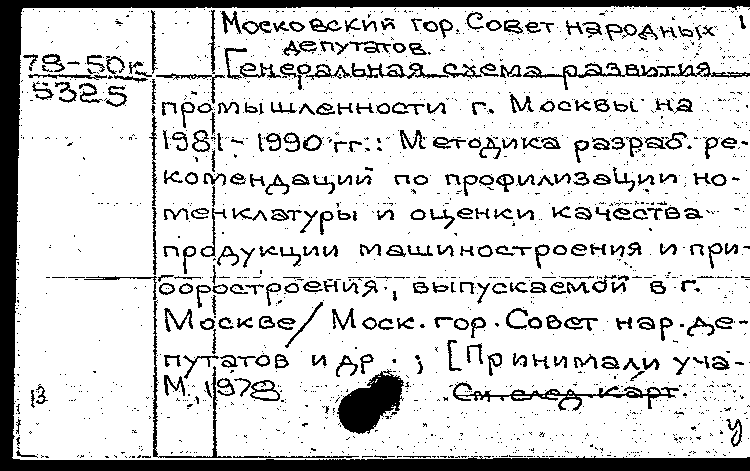 Московский гор. Совет народных
депутатов.
78-50к
5325
Генеральная схема развития
промышленности г. Москвы на
1981-1990 гг.: Методика разраб. ре-
комендаций по профилизации но-
менклатуры и оценки качества
продукции машиностроения и при-
боростроения, выпускаемой в г.
Москве/ Моск. гор. Совет нар. де-
путатов и др.; [Принимали уча-
М., 1978
См. след. карт.
13
у